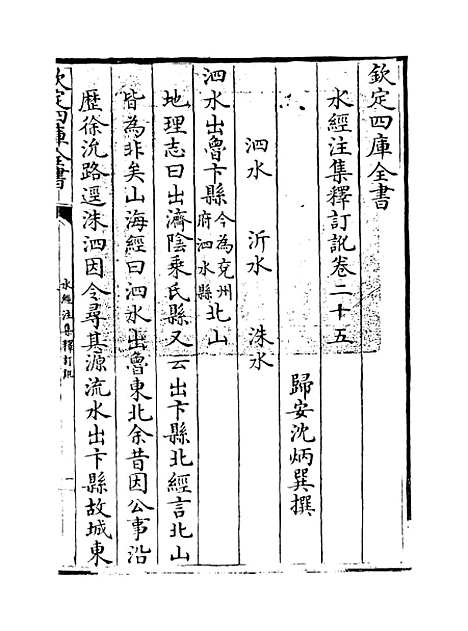 欽定四庫全書
水經注集釋訂訛卷二十五
歸安沈炳巽撰
泗水 沂水 洙水
泗水出魯卞縣今為兗州府泗水縣北山
地理志曰出濟陰乗氏縣又云出卞縣北經言北山
皆為非矣山海經曰泗水出魯東北余昔因公事沿
歷徐沇路逕洙泗因令尋其源流水出卞縣故城東
欽定四庫全書
水經注集釋訂訛
一